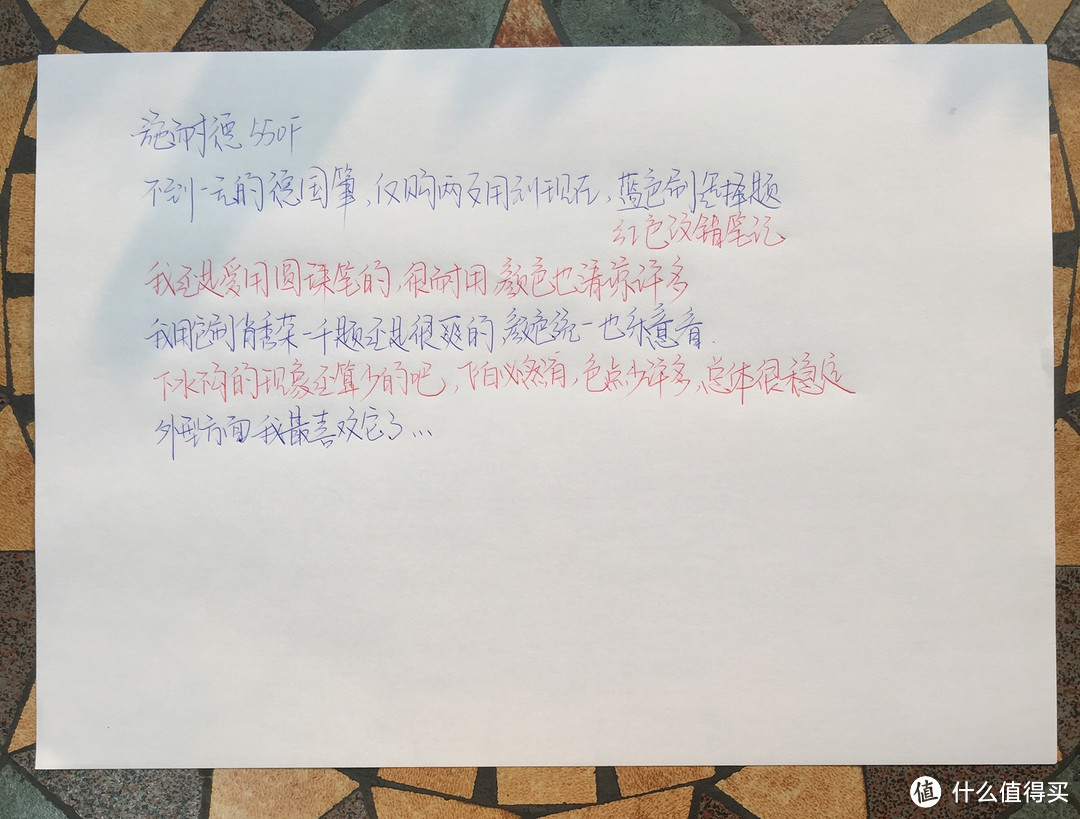 施耐德 550F
不到一元的德国筆,仅购两支用到现在,蓝色刷选择题
红色改错笔记
我还是爱用圆珠笔的,很耐用 颜色也清凉许多
我用它刷肖秀荣一千题还是很爽的,颜色统一也乐意看.
下水不的现象还算少的吧,飞白必然有,色点少许多,总体很稳定
外型方面我最喜欢它了...
值 什么值得买